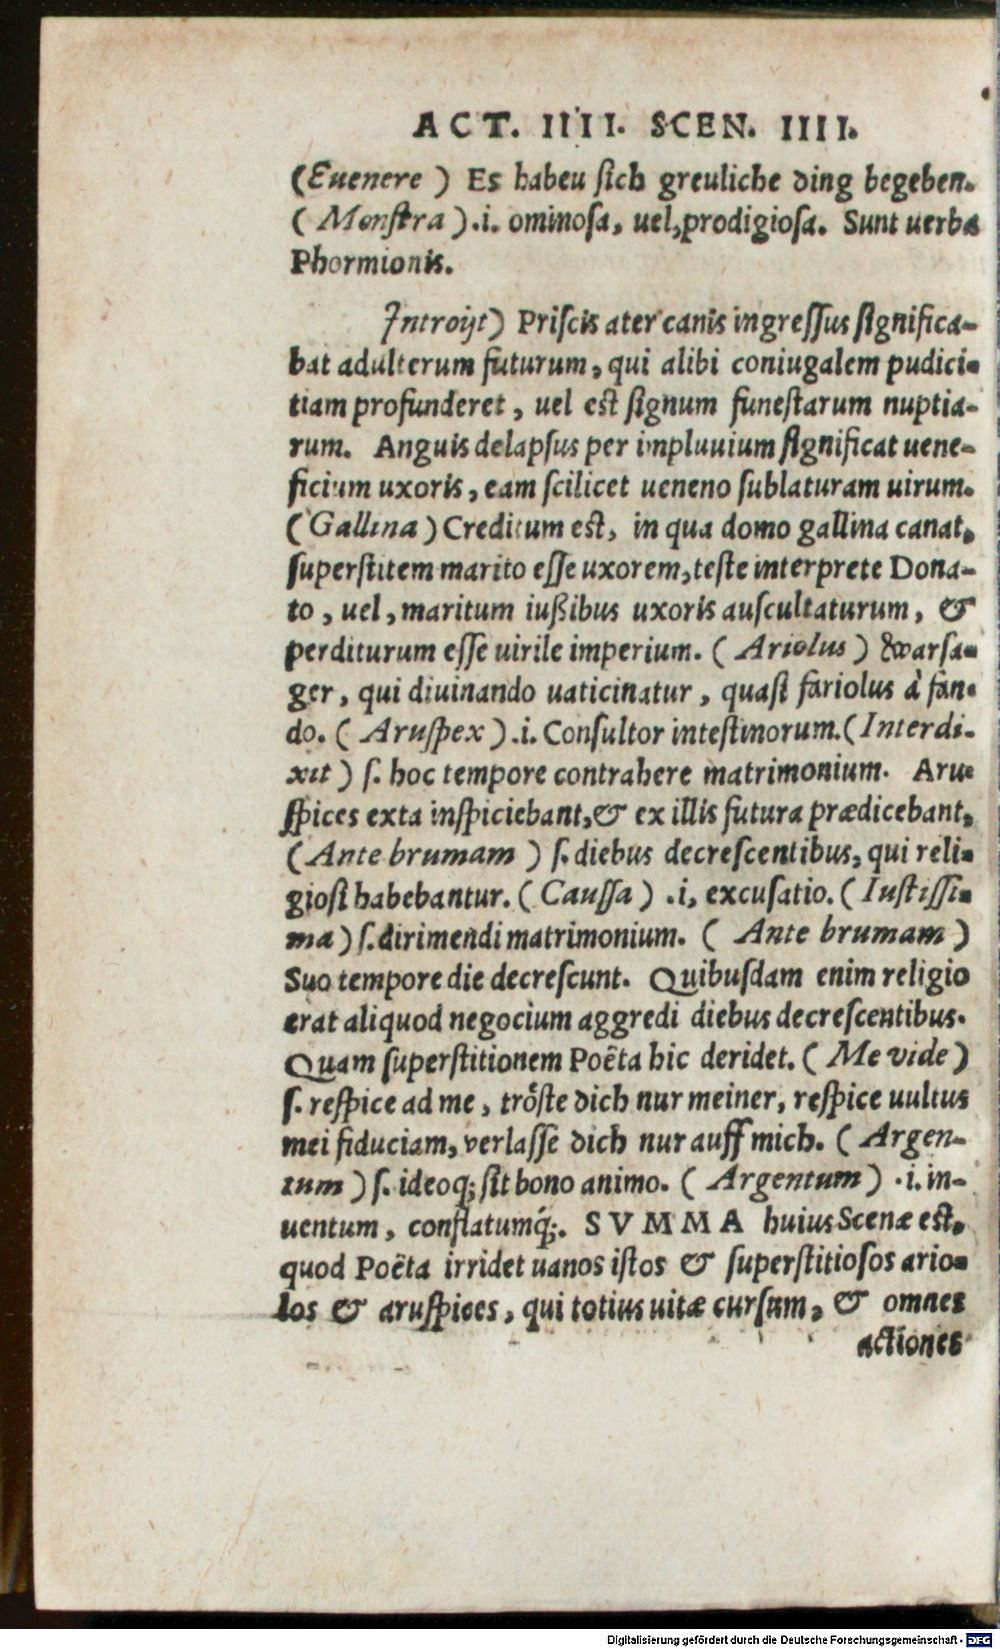 ACT. IIII. SCEN. IIII.
(Euenere) Es habeu ſich greuliche ding begeben.
(Monſtra).i. ominoſa, uel, prodigioſa. Sunt uerba
Phormionis.
Introijt) Priſcis ater canis ingreſſus ſignifica-
bat adulterum futurum, qui alibi coniugalem pudici-
tiam profunderet, uel eſt ſignum funeſtarum nuptia-
rum. Anguis delapſus per impluuium ſignificat uene-
ficium uxoris, eam ſcilicet ueneno ſublaturam uirum.
(Gallina) Creditum eſt, in qua domo gallina canat,
ſuperſtitem marito eſſe uxorem, teſte interprete Dona-
to, uel, maritum iußibus uxoris auſcultaturum, &
perditurum eſſe uirile imperium. (Ariolus) Warſa-
ger, qui diuinando uaticinatur, quaſi fariolus à fan-
do. (Aruſpex).i. Conſultor inteſtinorum. (Interdi-
xit) ſ. hoc tempore contrahere matrimonium. Aru-
ſpices exta inſpiciebant, & ex illis futura prædicebant,
(Ante brumam) ſ. diebus decreſcentibus, qui reli-
gioſi habebantur. (Cauſſa) .i, excuſatio. (Iuſtiſſi-
ma) ſ. dirimendi matrimonium. (Ante brumam)
Suo tempore die decreſcunt. Quibuſdam enim religio
erat aliquod negocium aggredi diebus decreſcentibus.
Quam ſuperſtitionem Poëta hic deridet. (Me vide)
ſ. reſpice ad me, tröſte dich nur meiner, reſpice uultus
mei fiduciam, verlaſſe dich nur auff mich. (Argen-
tum) ſ. ideoq; ſit bono animo. (Argentum) .i. in-
uentum, conflatumq́;. SVMMA huius Scenæ eſt,
quod Poëta irridet uanos iſtos & ſuperſtitioſos ario-
los & aruſpices, qui totius uitæ curſum, & omnes
actiones
Digitalisierung gefördert durch die Deutsche Forschungsgemeinschaft - DFG